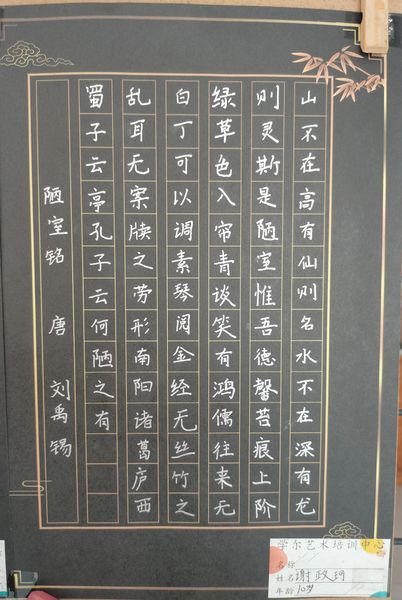 山不在高有仙则名水不在深有龙
则灵斯是陋室惟吾德馨苔痕上阶
绿草色入帘青谈笑有鸿儒往来无
白丁可以调素琴阅金经无丝竹之
乱耳无案牍之劳形南阳诸葛庐西
蜀子云亭孔子云何陋之有
陋室铭 唐 刘禹锡
学尔艺术培训中心
名称
姓名 谢政珂
年龄 10岁